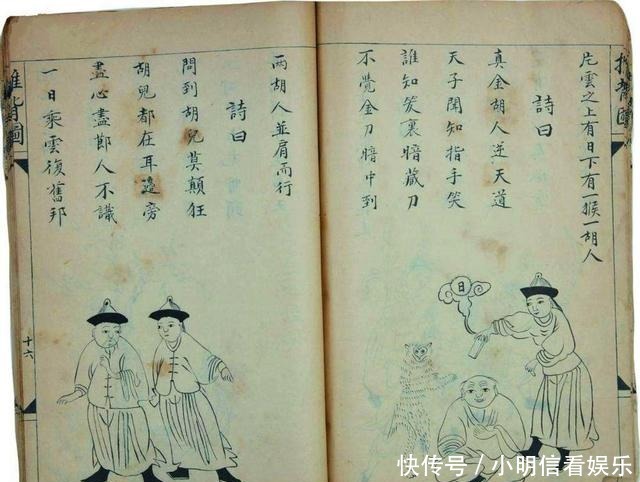 推背圖
片雲之上有日下有一猴一胡人
詩曰
真金胡人逆天道
天子聞知指手笑
誰知笑裏暗藏刀
不覺金刀暗中到
日
兩胡人並肩而行
詩曰
問到胡兒莫顛狂
胡兒都在耳邊旁
盡心盡節人不識
一日乘雲復舊邦
推背圖
十六
快传号 / 小明信看娱乐